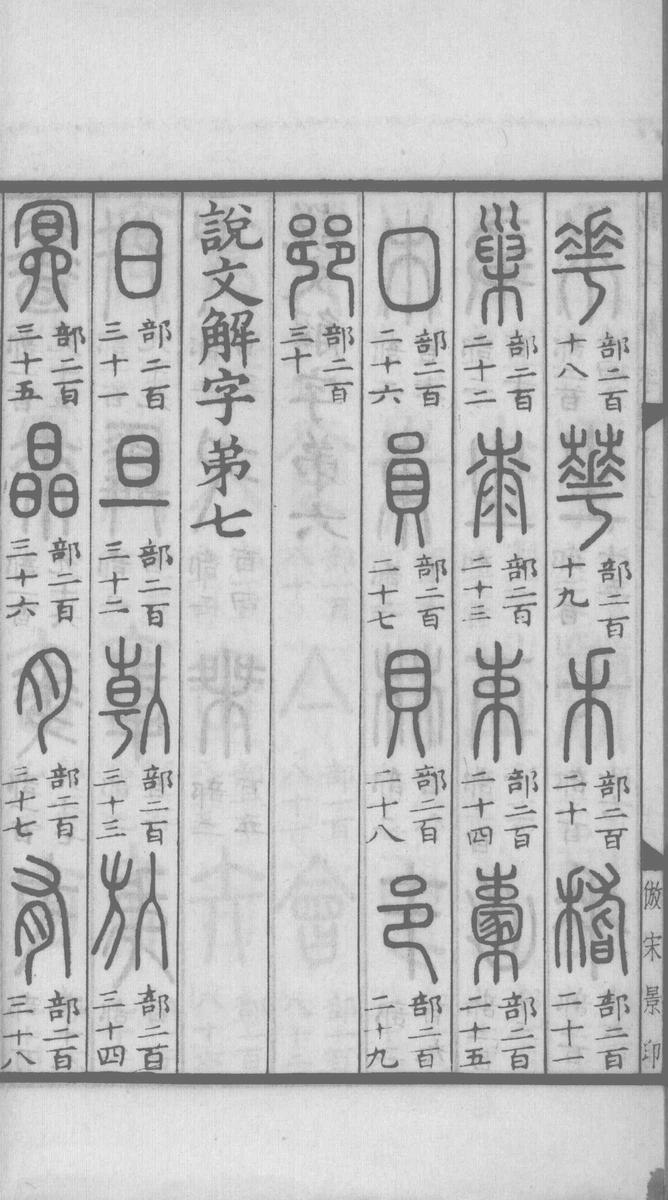 𠌶部二百十八華部二百十九𥝌部二百二十稽部二百二十一
巢部二百二十二桼部二百二十三束部二百二十四㯻部二百二十五
囗部二百二十六員部二百二十七貝部二百二十八邑部二百二十九
𨛜部二百三十
說文解字弟七
日部二百三十一旦部二百三十二倝部二百三十三㫃部二百三十四
冥部二百三十五晶部二百三十六月部二百三十七有部二百三十八
倣宋景印